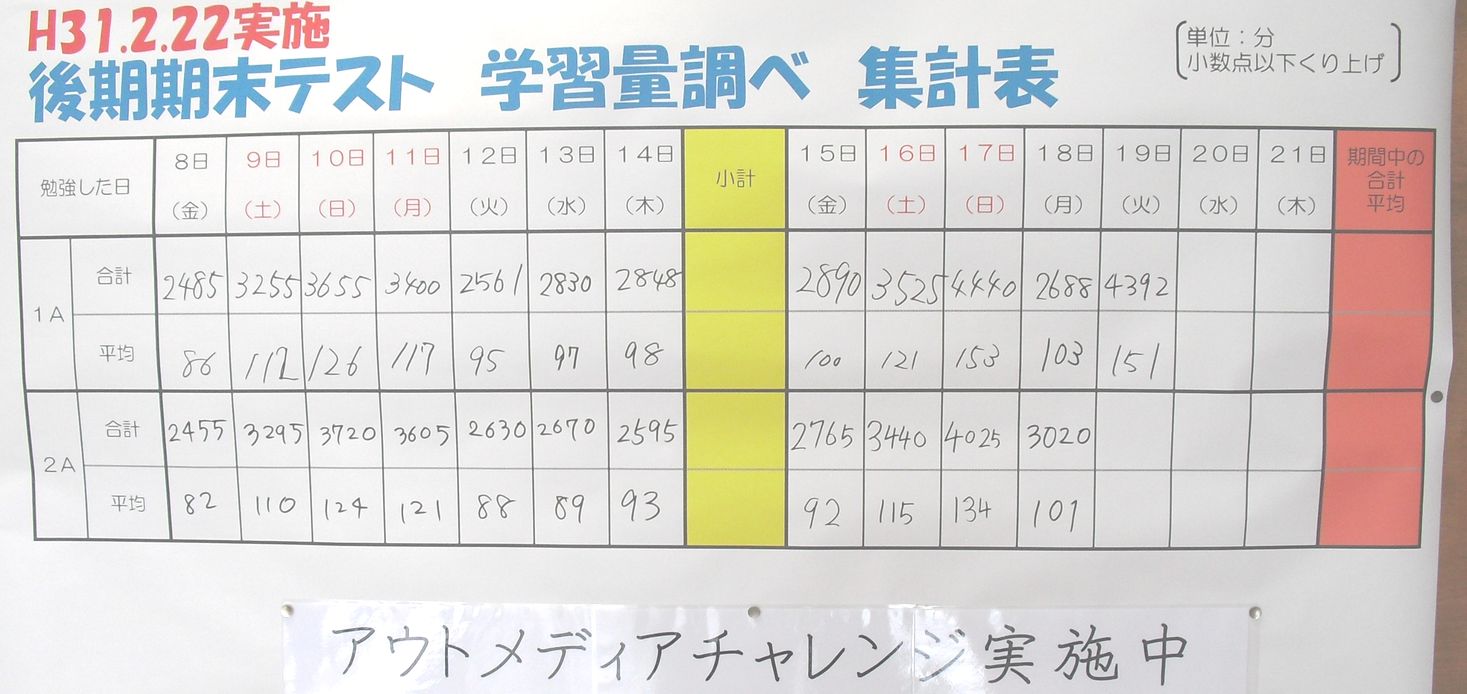 H31.2.22実施
後期期末テスト 学習量調べ 集計表
単位：分
小数点以下くり上げ
勉強した日 8日 9日 10日 11日 12日 13日 14日 小計 15日 16日 17日 18日 19日 20日 21日 期間中の合計平均
（金） （土） （日） （月） （火） （水） （木） （金） （土） （日） （月） （火） （水） （木）
1A 合計 2485 3255 3655 3400 2561 2830 2848 2890 3525 4440 2688 4392
平均 86 112 126 117 95 97 98 100 121 153 103 151
2A 合計 2455 3295 3720 3605 2630 2670 2595 2765 3440 4025 3020
平均 82 110 124 121 88 89 93 92 115 134 101
アウトメディアチャレンジ実施中